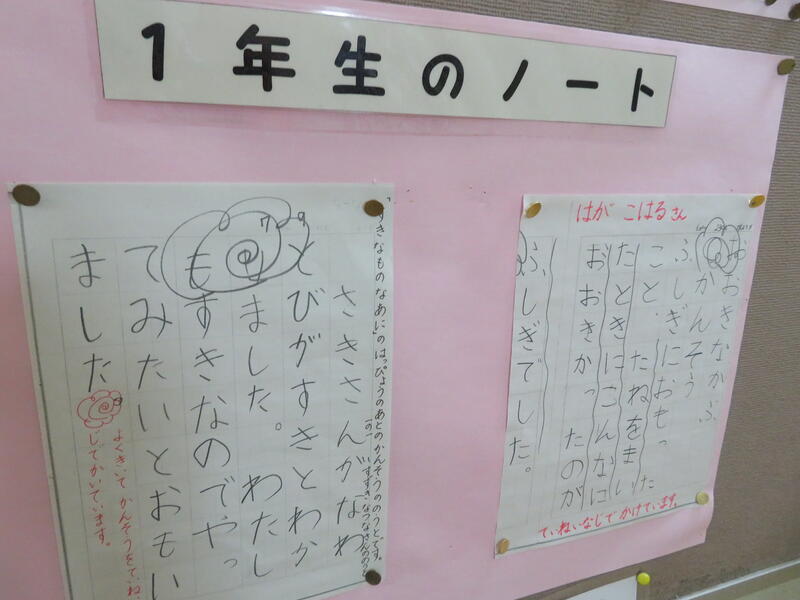 1年生のノート
「すきなものなあに」のはっぴょうのあとのかんそうのノートです。
さきさんがなわ
とびがすきとわか
りました。わたし
もすきなのでやっ
てみたいとおもい
ました
よくきいてかんそうをていね
じでかいています。
はが こはるさん
おおきなかぶ
かんそう
ふしぎにおもっ
こと、たねをまい
たときにこんなに
おおきかったのが
ふしぎでした。
ていねいなじでかけています。